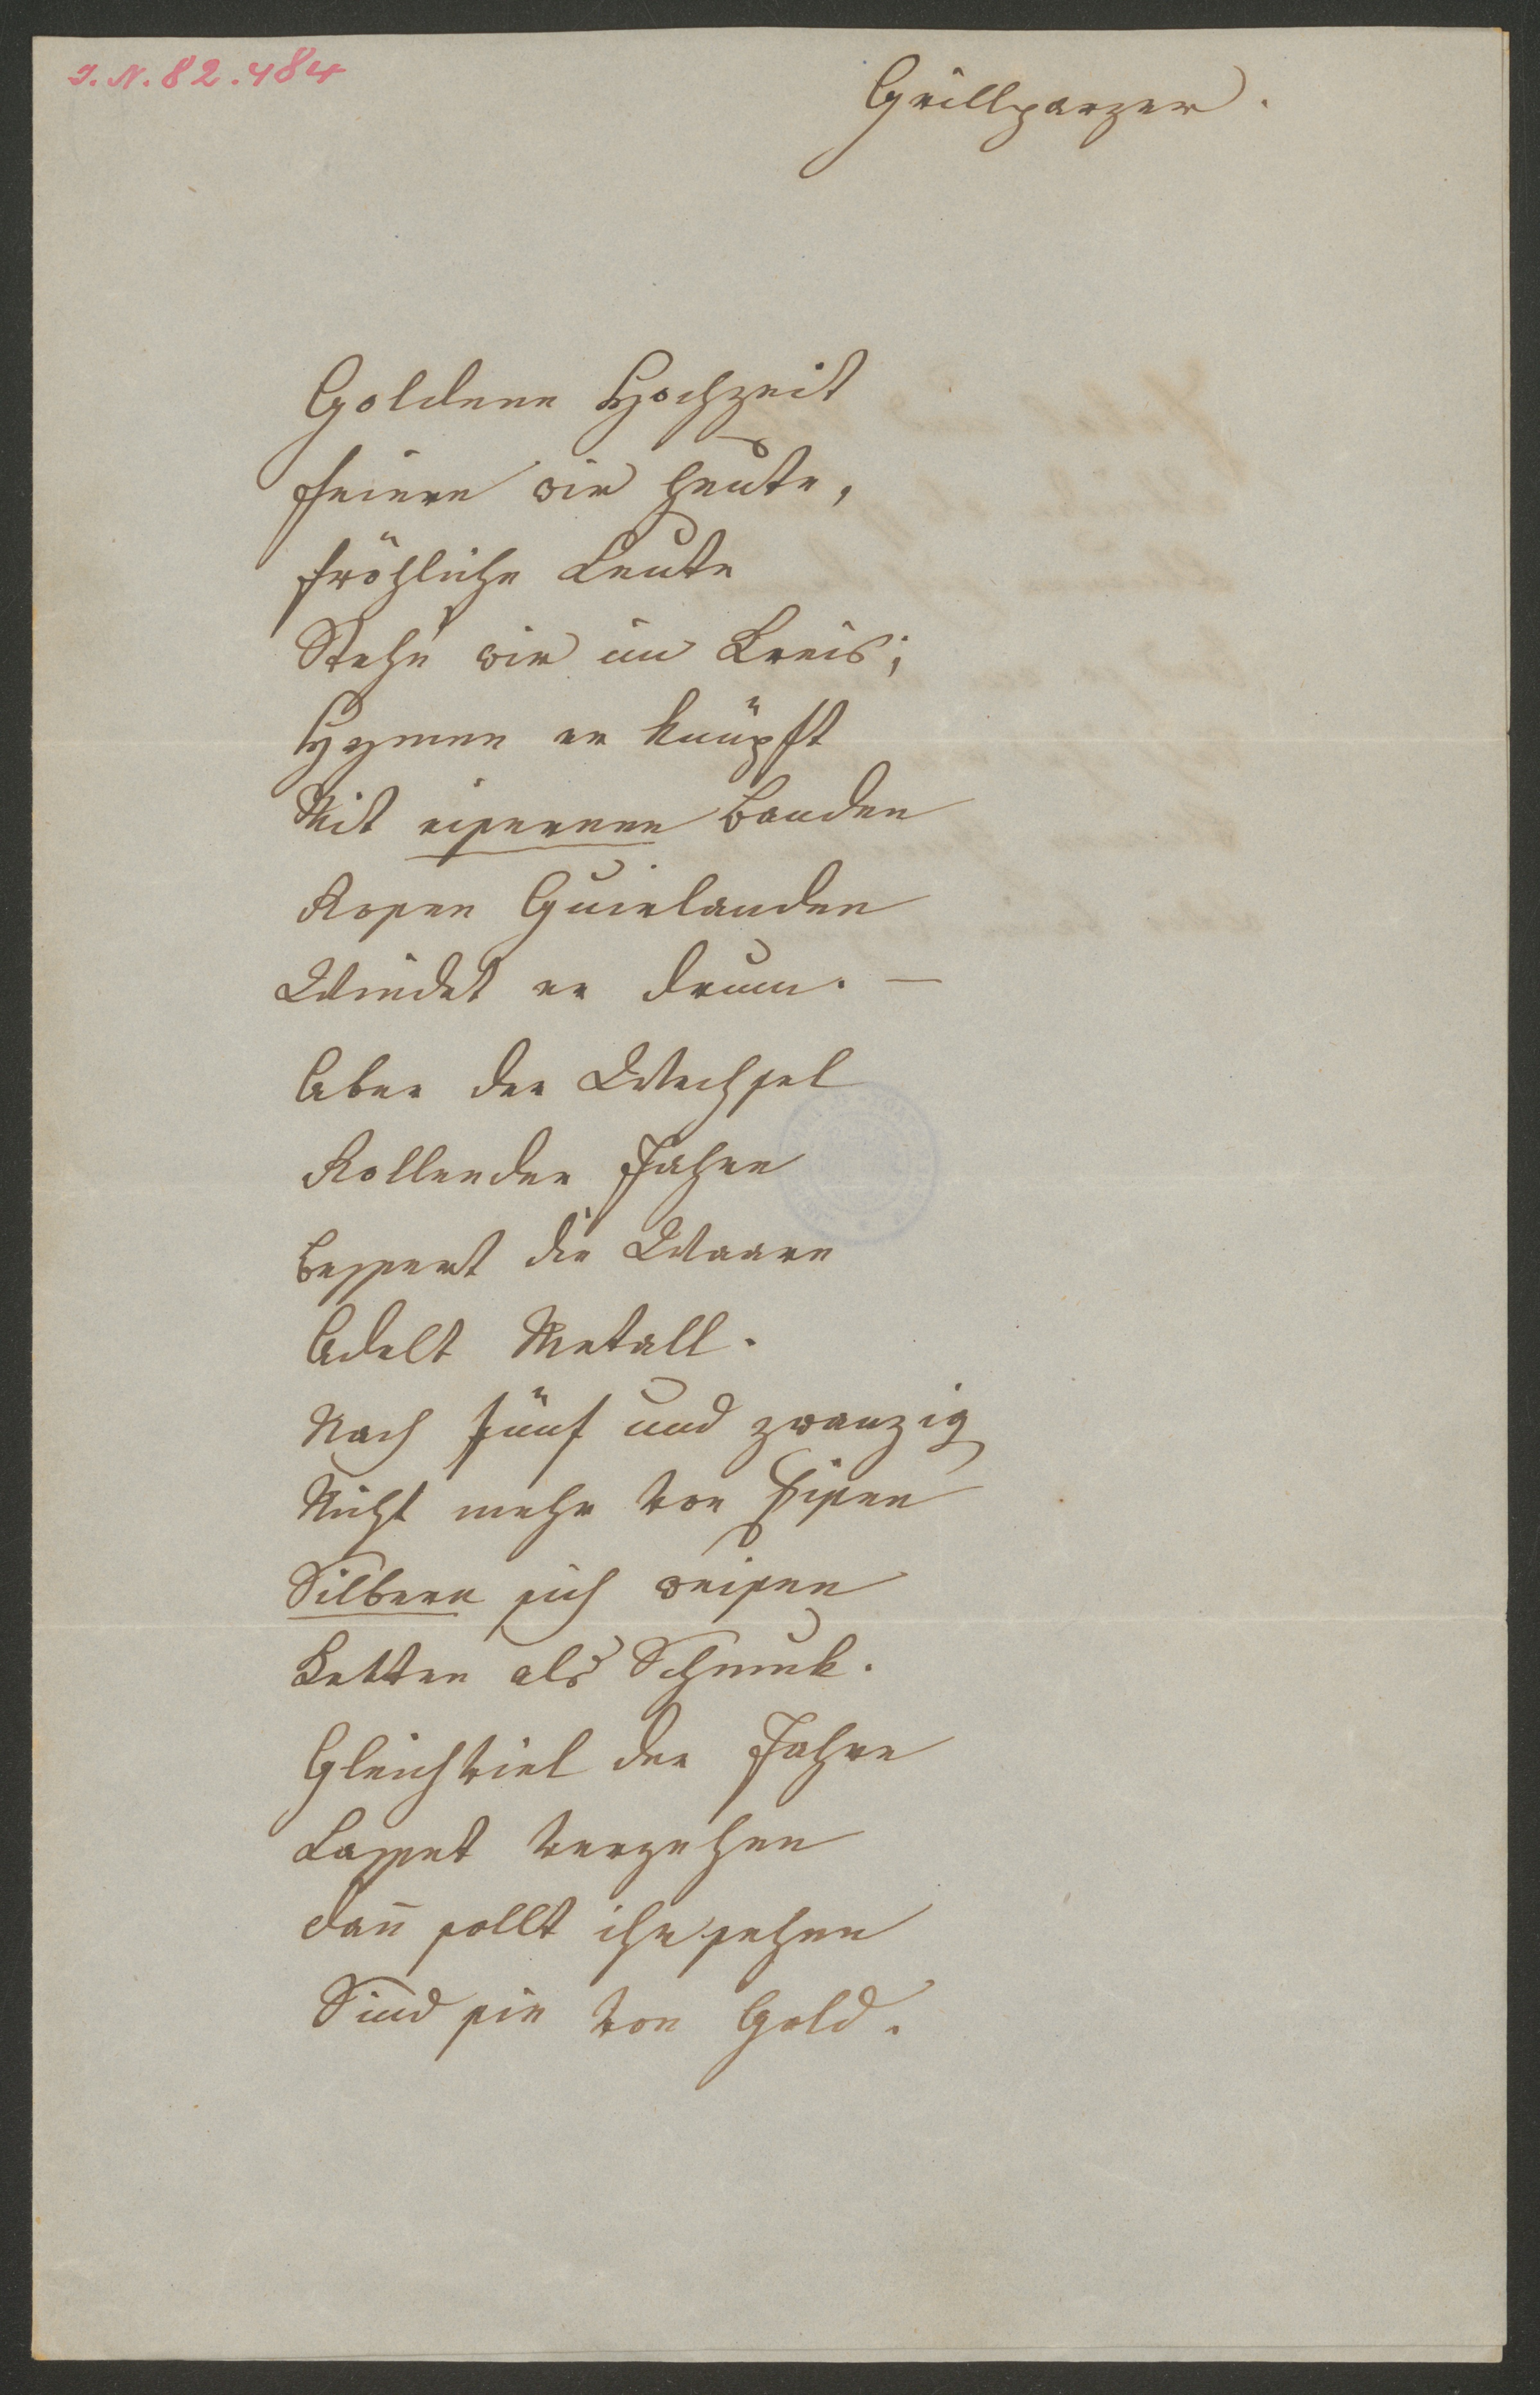 J. N. 82.484
Grillparzer.
Goldene Hochzeit
feiern wir heute,
fröhliche Leute
Stehn wir im Kreis;
Hymen er knüpft
Mit eisernen Banden
Rosen Guirlanden
Windet er drum. —
Aber der Wechsel
Rollender Jahre
Bessert die Waare
Adelt Metall.
Nach fünf und zwanzig
Nicht mehr von Eisen
Silbern sich weisen
Ketten als Schmuk.
Gleichviel der Jahre
Lasset vergehen
dan̄ sollt ihr sehen
Sind sie von Gold.